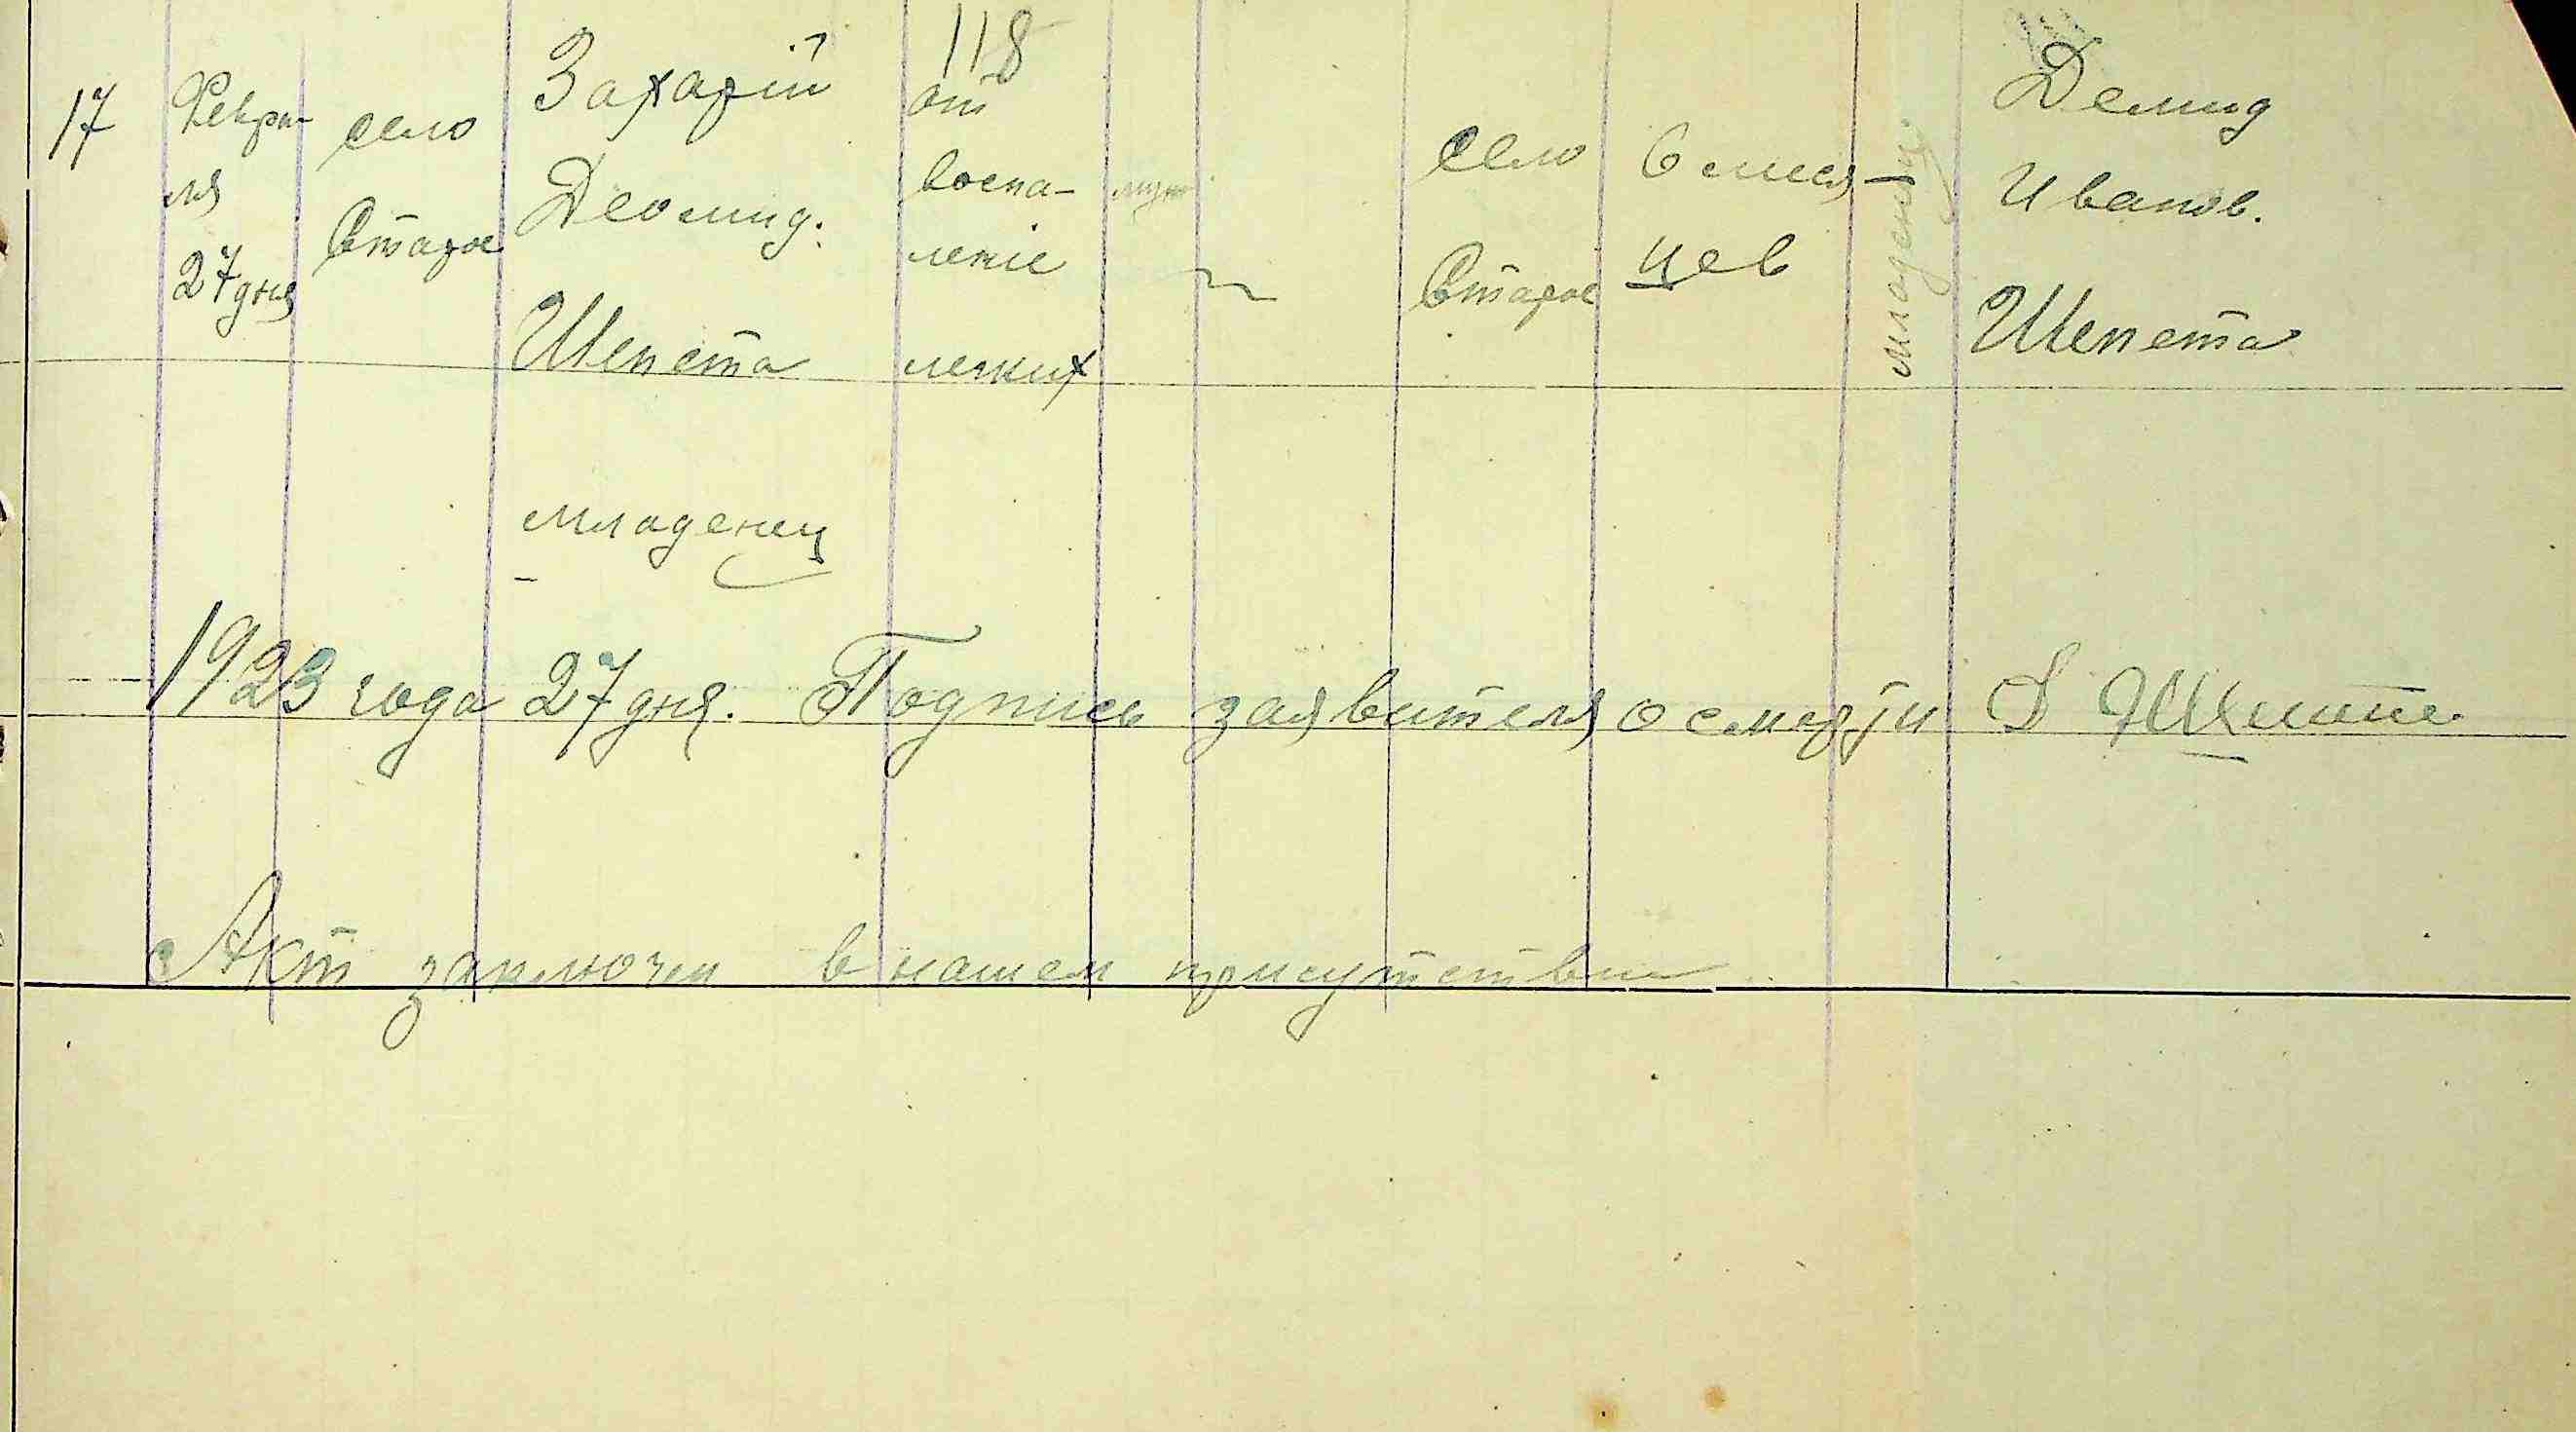 17
Февра-
ля
27 дня
село
Старое
Захарій
Деомид.
Шепета
младенец
118
от
воспа-
леніе
легких
муж
село
Старое
6 меся-
цев
младенец
Демид
Иванов.
Шепета
1923 года 27 дня. Подпись заявителя о смерти Д
Акт заключен в нашем присутствии